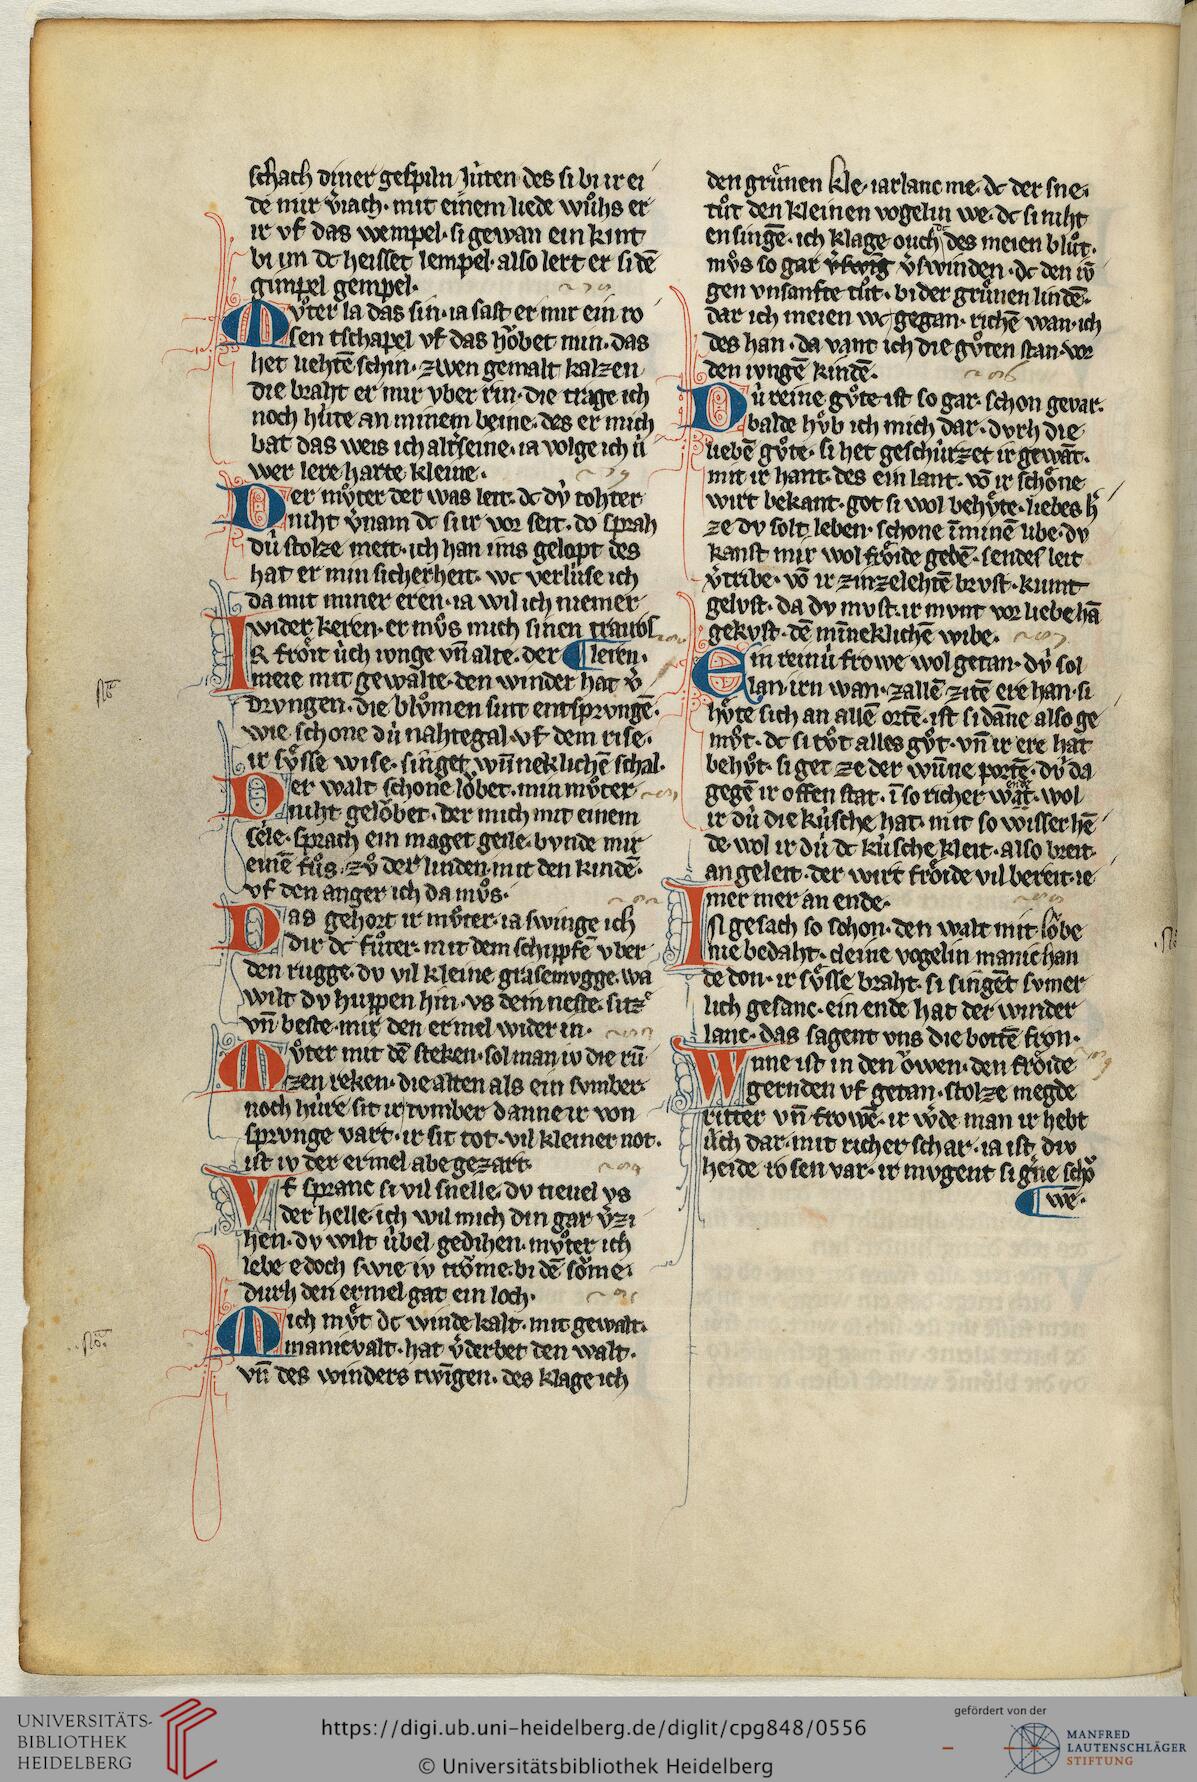 schach diner gespiln Jv̍ten des si bi ir ei
de mir v̍iach· mit einem liede wůhs er
ir vf das wempel· si gewan ein kint
bi im dc heisset lempel· also lert er si dē
gimpel gempel·
Mv̊ter la das sin· ia sast er mir ein ro
sen tschapel vf das hőbet min· das
het liehtē schin· zwen gemalt kalzen
die braht er mir vber rin· die trage ich
noch hv̍te an minem beine· des er mich
bat das weis ich alt seine· ia volge ich v̍
wer lere harte kleine·
Der mv̊ter der was leit· dc dv̍ tohter
niht v̍nam dc si ir vor seit· do sprah
dv̍ stolze meit· ich han ims gelopt des
hat er min sicherheit· wc verlv̍se ich
da mit miner eren· ia wil ich niemer
wider keren· er mv̊s mich sinen traubs
Is frőit v̍ch ivnge vn̄ alte· der leren·
meie mit gewalte· den winder hat v̍
drvngen· die blůmen sint entsprvngē·
wie schone dv̍ nahtegal· vf dem rise·
ir sv̊sse wise· singet wn̄neklichē schal·
Der walt schone lőbet· min mv̊ter
niht gelőbet· der mich mit einem
seile· sprach ein maget geile· bvnde mir
einē fůs· zv̊ der linden mit den kindē·
vf den anger ich da mv̊s·
Das gehort ir mv̊ter· ia swinge ich
dir dc fůter· mit dem schipfē vber
den rugge· dv vil kleine grasemvgge· wa
wilt dv huppen hin· vs dem neste· sitze
vn̄ beste· mir den ermel wider in·
Mv̊ter mit dē steken· sol man iv die rv̄
zen reken· die alten als ein svmber·
noch hv̍re sit ir tvmber danne ir von
sprvnge vart· ir sit tot· vil kleiner not·
ist iv der ermel abe gezart·
Vf spranc si vil snelle· dv tieuel vs
der helle· ich wil mich din gar v̍zi
hen· dv wilt v̍bel gedihen· mv̊ter ich
lebe edoch swie iv trőme· bi dē sőme·
durh den ermel gat ein loch·
Mich mv̊t dc winde kalt· mit gewalt·
manicvalt· hat v̍derbet den walt·
vn̄ des winders twīgen· des klage ich
den grůnen kle· iarlanc me· dc der sne·
tůt den kleinen vogelin we· dc si niht
en singē· ich klage ouch des meien blůt·
mv̊s so gar v̍swinden· dc den iv̄
gen vnsanfte tůt· bi der grůnen lindē·
dar ich meien wc gegan· richē wan· ich
des han· da vant ich die gv̊ten stan· vor
den ivngē kindē·
Dv̍ reine gv̊te ist so gar· schon gevar·
balde hv̊b ich mich dar· dvrh die
liebē gv̊te· si het geschv̍rzet ir gewāt·
mit ir hant· des ein lant· vō ir schőne
wirt bekant· got si wol behv̊te· liebes h̍
ze dv solt leben· schone īminē libe· dv
kanst mir wol frőide gebē· sendes leit
v̍tribe· vō ir zinzelehtē brvst· kumt
gelvst· da dv mvst· ir mvnt vor liebe hā
gekvst· dē mīneklichē wibe·
Ein reinv̍ frowe wol getan· dv̍ sol
lan irn wan· zallē zitē ere han· si
hv̊te sich an allē ortē· ist si dāne also ge
mv̊t· dc si tv̊t alles gv̊t· vn̄ ir ere hat
behv̊t· si get ze der wn̄ne portē· dv̍ da
gegē ir offen stat· ī so richer wat· wol
ir dv̍ die kv̍sche hat· mit so wisser hē
de· wol ir dv̍ dc kv̍sche kleit· also breit·
an geleit· der wirt frőide vil bereit· ie
mer mer an ende·
In gesach so schon· den walt mit lőbe
nie bedaht· cleine vogelin manic han
de don· ir sv̊sse braht· si singēt svmer
lich gesanc· ein ende hat der winder
lanc· das sagent vns die bottē fron·
Wnne ist in den őwen· den frőide
gernden vf getan· stolze megde
ritter vn̄ frowē· ir w̍de man ir hebt
v̍ch dar· mit richer schar· ia ist div
heide rosen var· ir mvgent si g̍ne scho̊
we·
UNIVERSITÄTS-
BIBLIOTHEK
HEIDELBERG
https://digi.ub.uni-heidelberg.de/diglit/cpg848/0556
© Universitätsbibliothek Heidelberg
gefördert von der
MANFRED
LAUTENSCHLÄGER
STIFTUNG